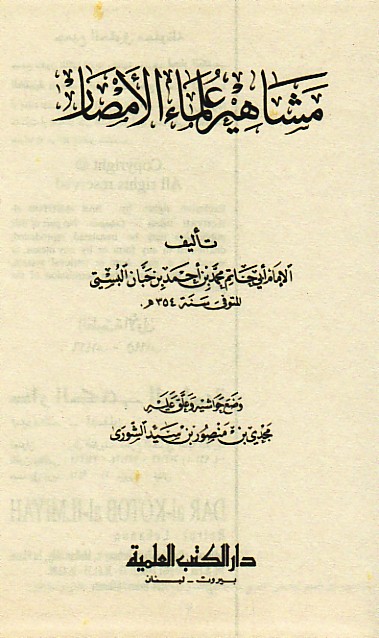 مشاهير علماء الأمصار
تأليف
الإمام أبي حاتم محمد بن أحمد بن حبان البستي
المتوفى سنة ٣٥٤هـ.
وضع حواشيه وعلق عليه
مجدي بن منصور بن سيد الشورى
دار الكتب العلمية
بيروت - لبنان